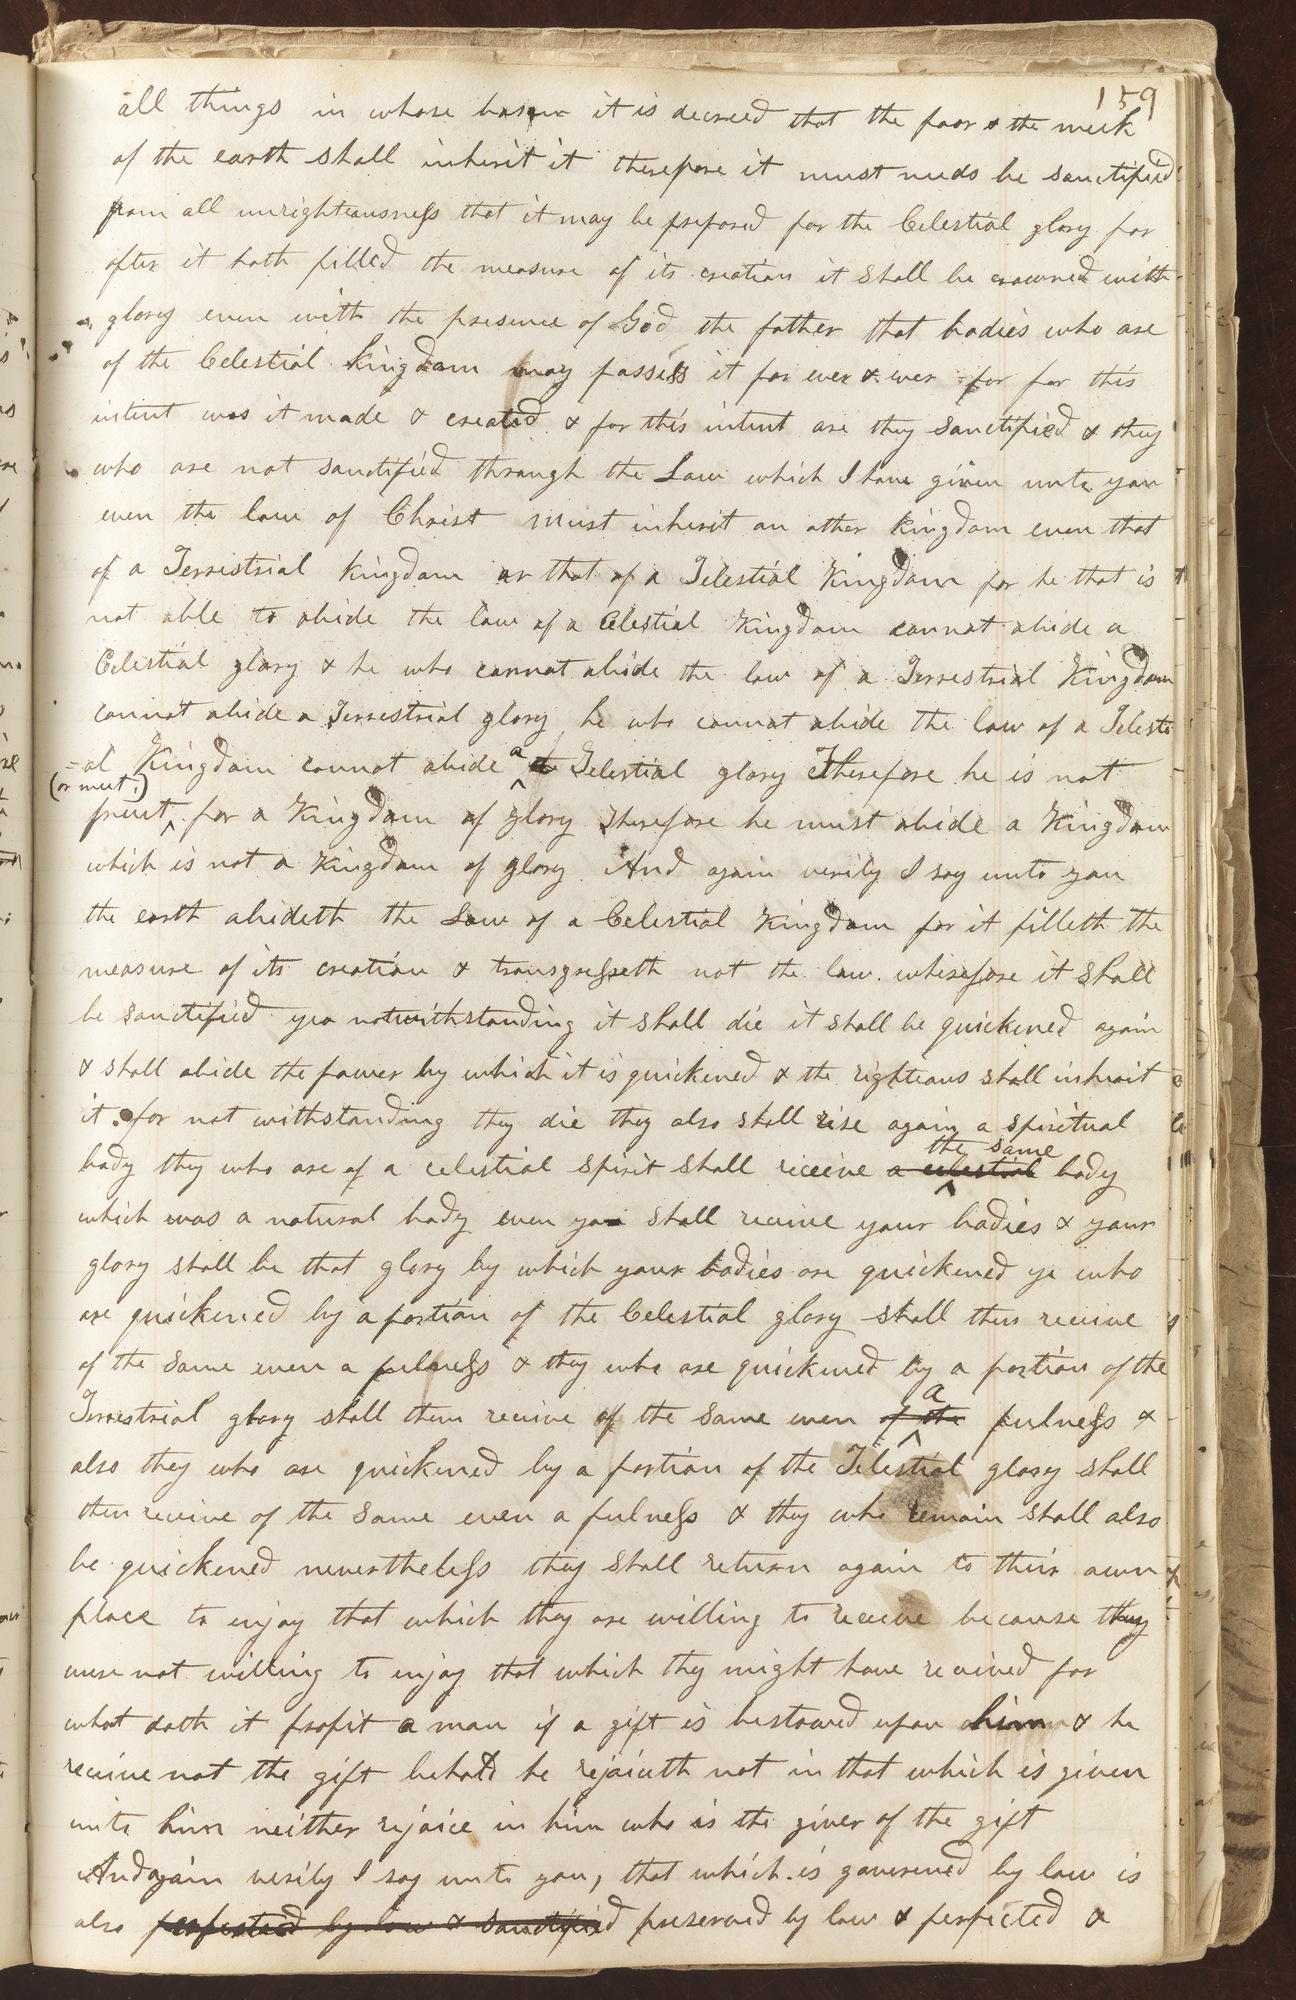 159
all things in whose bosom it is decreed that the poor & the meek
of the earth shall inherit it therefore it must needs be sanctified
from all unrighteousness that it may be prepared for the Celestial glory for
after it hath filled the measure of its creation it shall be crowned with
glory even with the presence of God the father that bodies who are
of the Celestial kingdom may possess it for ever & ever for for this
intent was it made & created & for this intent are they sanctified & they
who are not sanctified through the Law which I have given unto you
even the law of Christ must inherit an other kingdom even that
of a Terrestrial kingdom or that of a Telestial Kingdom for he that is
not able to abide the law of a Celestial Kingdom cannot abide a
Celestial glory & he who cannot abide the law of a Terrestrial Kingdom
cannot abide a Terrestrial glory, he who cannot abide the law of a Telesti
=al Kingdom cannot abide a Telestial glory Therefore he is not
(or meet.)
for a Kingdom of glory Therefore he must abide a Kingdom
which is not a Kingdom of glory. And again verily I say unto you
the earth abideth the Law of a Celestial Kingdom for it filleth the
measure of its creation & transgresseth not the law. wherefore it shall
be sanctified yea notwithstanding it shall die it shall be quickened again
& shall abide the power by which it is quickened & the righteous shall inherit
it. for not withstanding they die they also shall rise again a spiritual
the same
body they who are of a celestial spirit shall receive a celestial body
which was a natural body even you shall receive your bodies & your
glory shall be that glory by which your bodies are quickened ye who
are quickened by a portion of the Celestial glory shall then receive
of the same even a fulness & they who are quickened by a portion of the
a
Terrestrial glory shall then receive of the same even of the fulness &
also they who are quickened by a portion of the Telestial glory shall
then receive of the same even a fulness & they who remain shall also
be quickened nevertheless they shall return again to their own
place to enjoy that which they are willing to receive because they
were not willing to enjoy that which they might have received for
what doth it profit a man if a gift is bestowed upon him & he
receive not the gift behold he rejoiceth not in that which is given
unto him neither rejoice in him who is the giver of the gift
And again verily I say unto you, that which is governed by law is
also perfected by law & sanctified preserved by law & perfected &